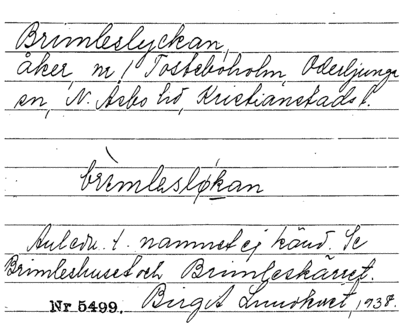 Brimleslyckan,
åker, nr 1 Tosteboholm, Oderljunga
sn, N. Åsbo hd, Kristianstads l.
brìmleslø̱kan
Anledn. t. namnet ej känd. Se
Brimleshuset och Brimleskärret.
Nr 5499. Birgit Lundkvist, 1938.